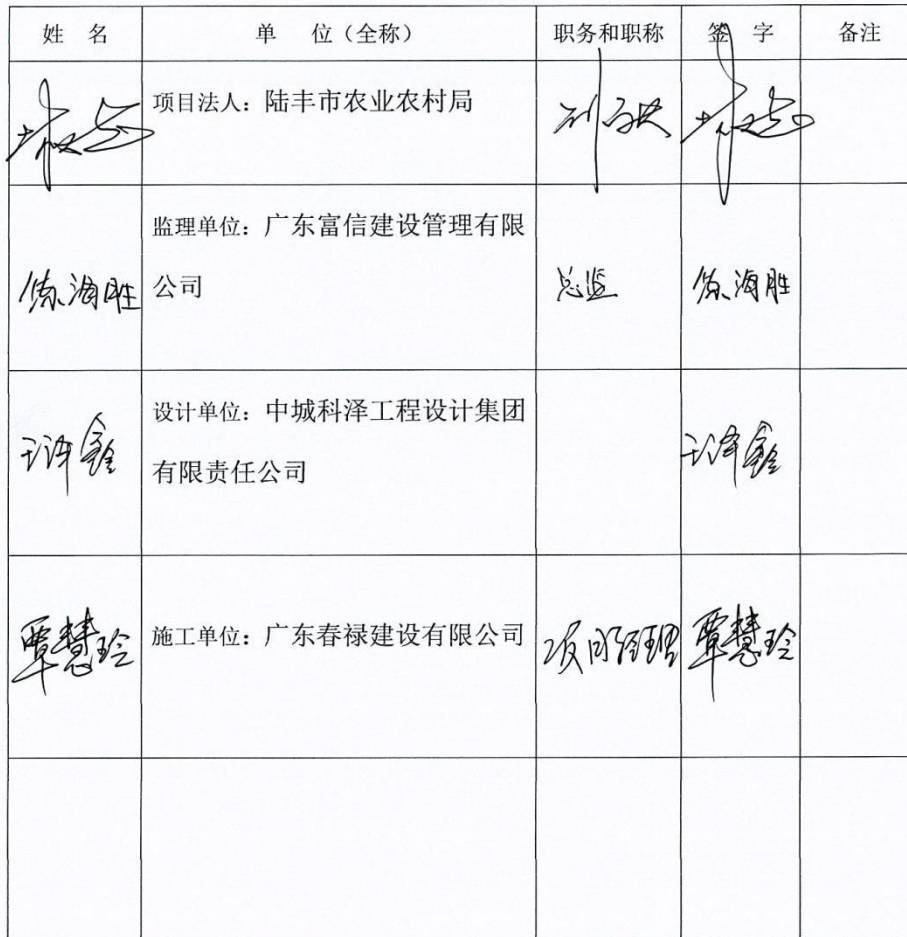 姓 名 单 位（全称） 职务和职称 签 字 备注
项目法人：陆丰市农业农村局
监理单位：广东富信建设管理有限
公司
总监
设计单位：中城科泽工程设计集团
有限责任公司
覃慧玲 施工单位：广东春禄建设有限公司 项目经理 覃慧玲